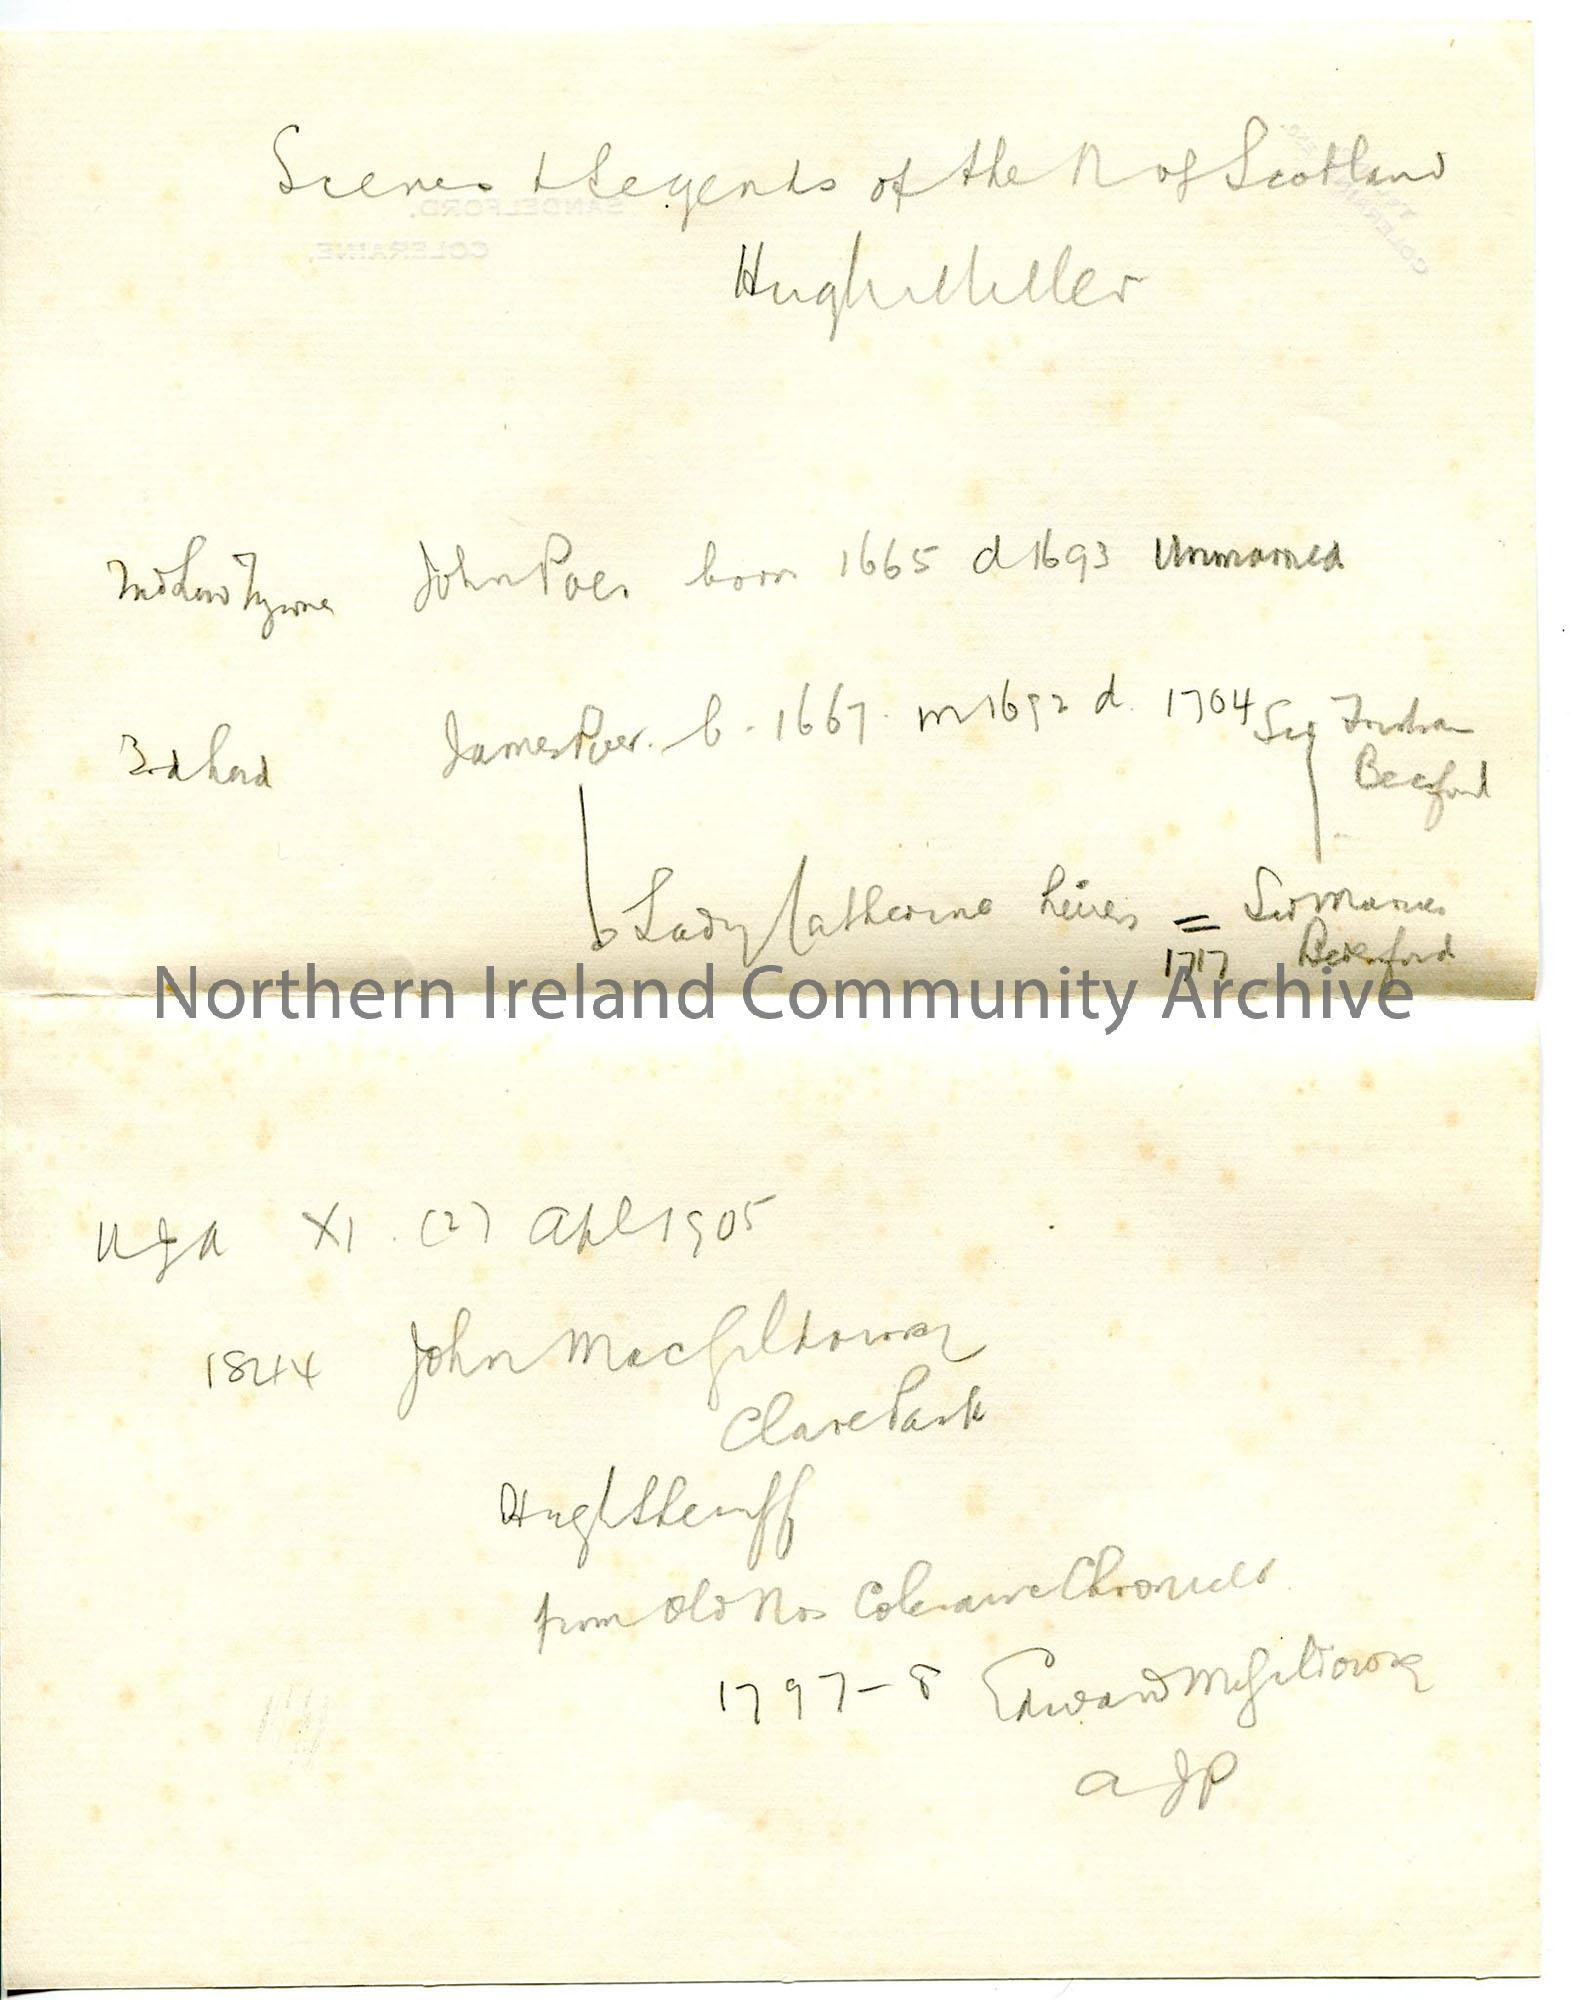 Scenes & Legends of the N of Scotland
SANDELFORD,
COLERAINE.
Hugh Miller
2nd Lord Tyrone John Poer born 1665 d 1693 Unmarried
3rd Lord James Poer. b. 1667. m 1692 d. 1704 Sir Tristram
Beresford
Lady Catherine heiress = Sir Marcus
1717 Beresford
Northern Ireland Community Archive
UJA XI. (2) Apl 1905
1844 John MacGildowny
Clare Park
High Sheriff
from Old Nos Coleraine Chronicles
1797-8 Edward McGildowny
a JP